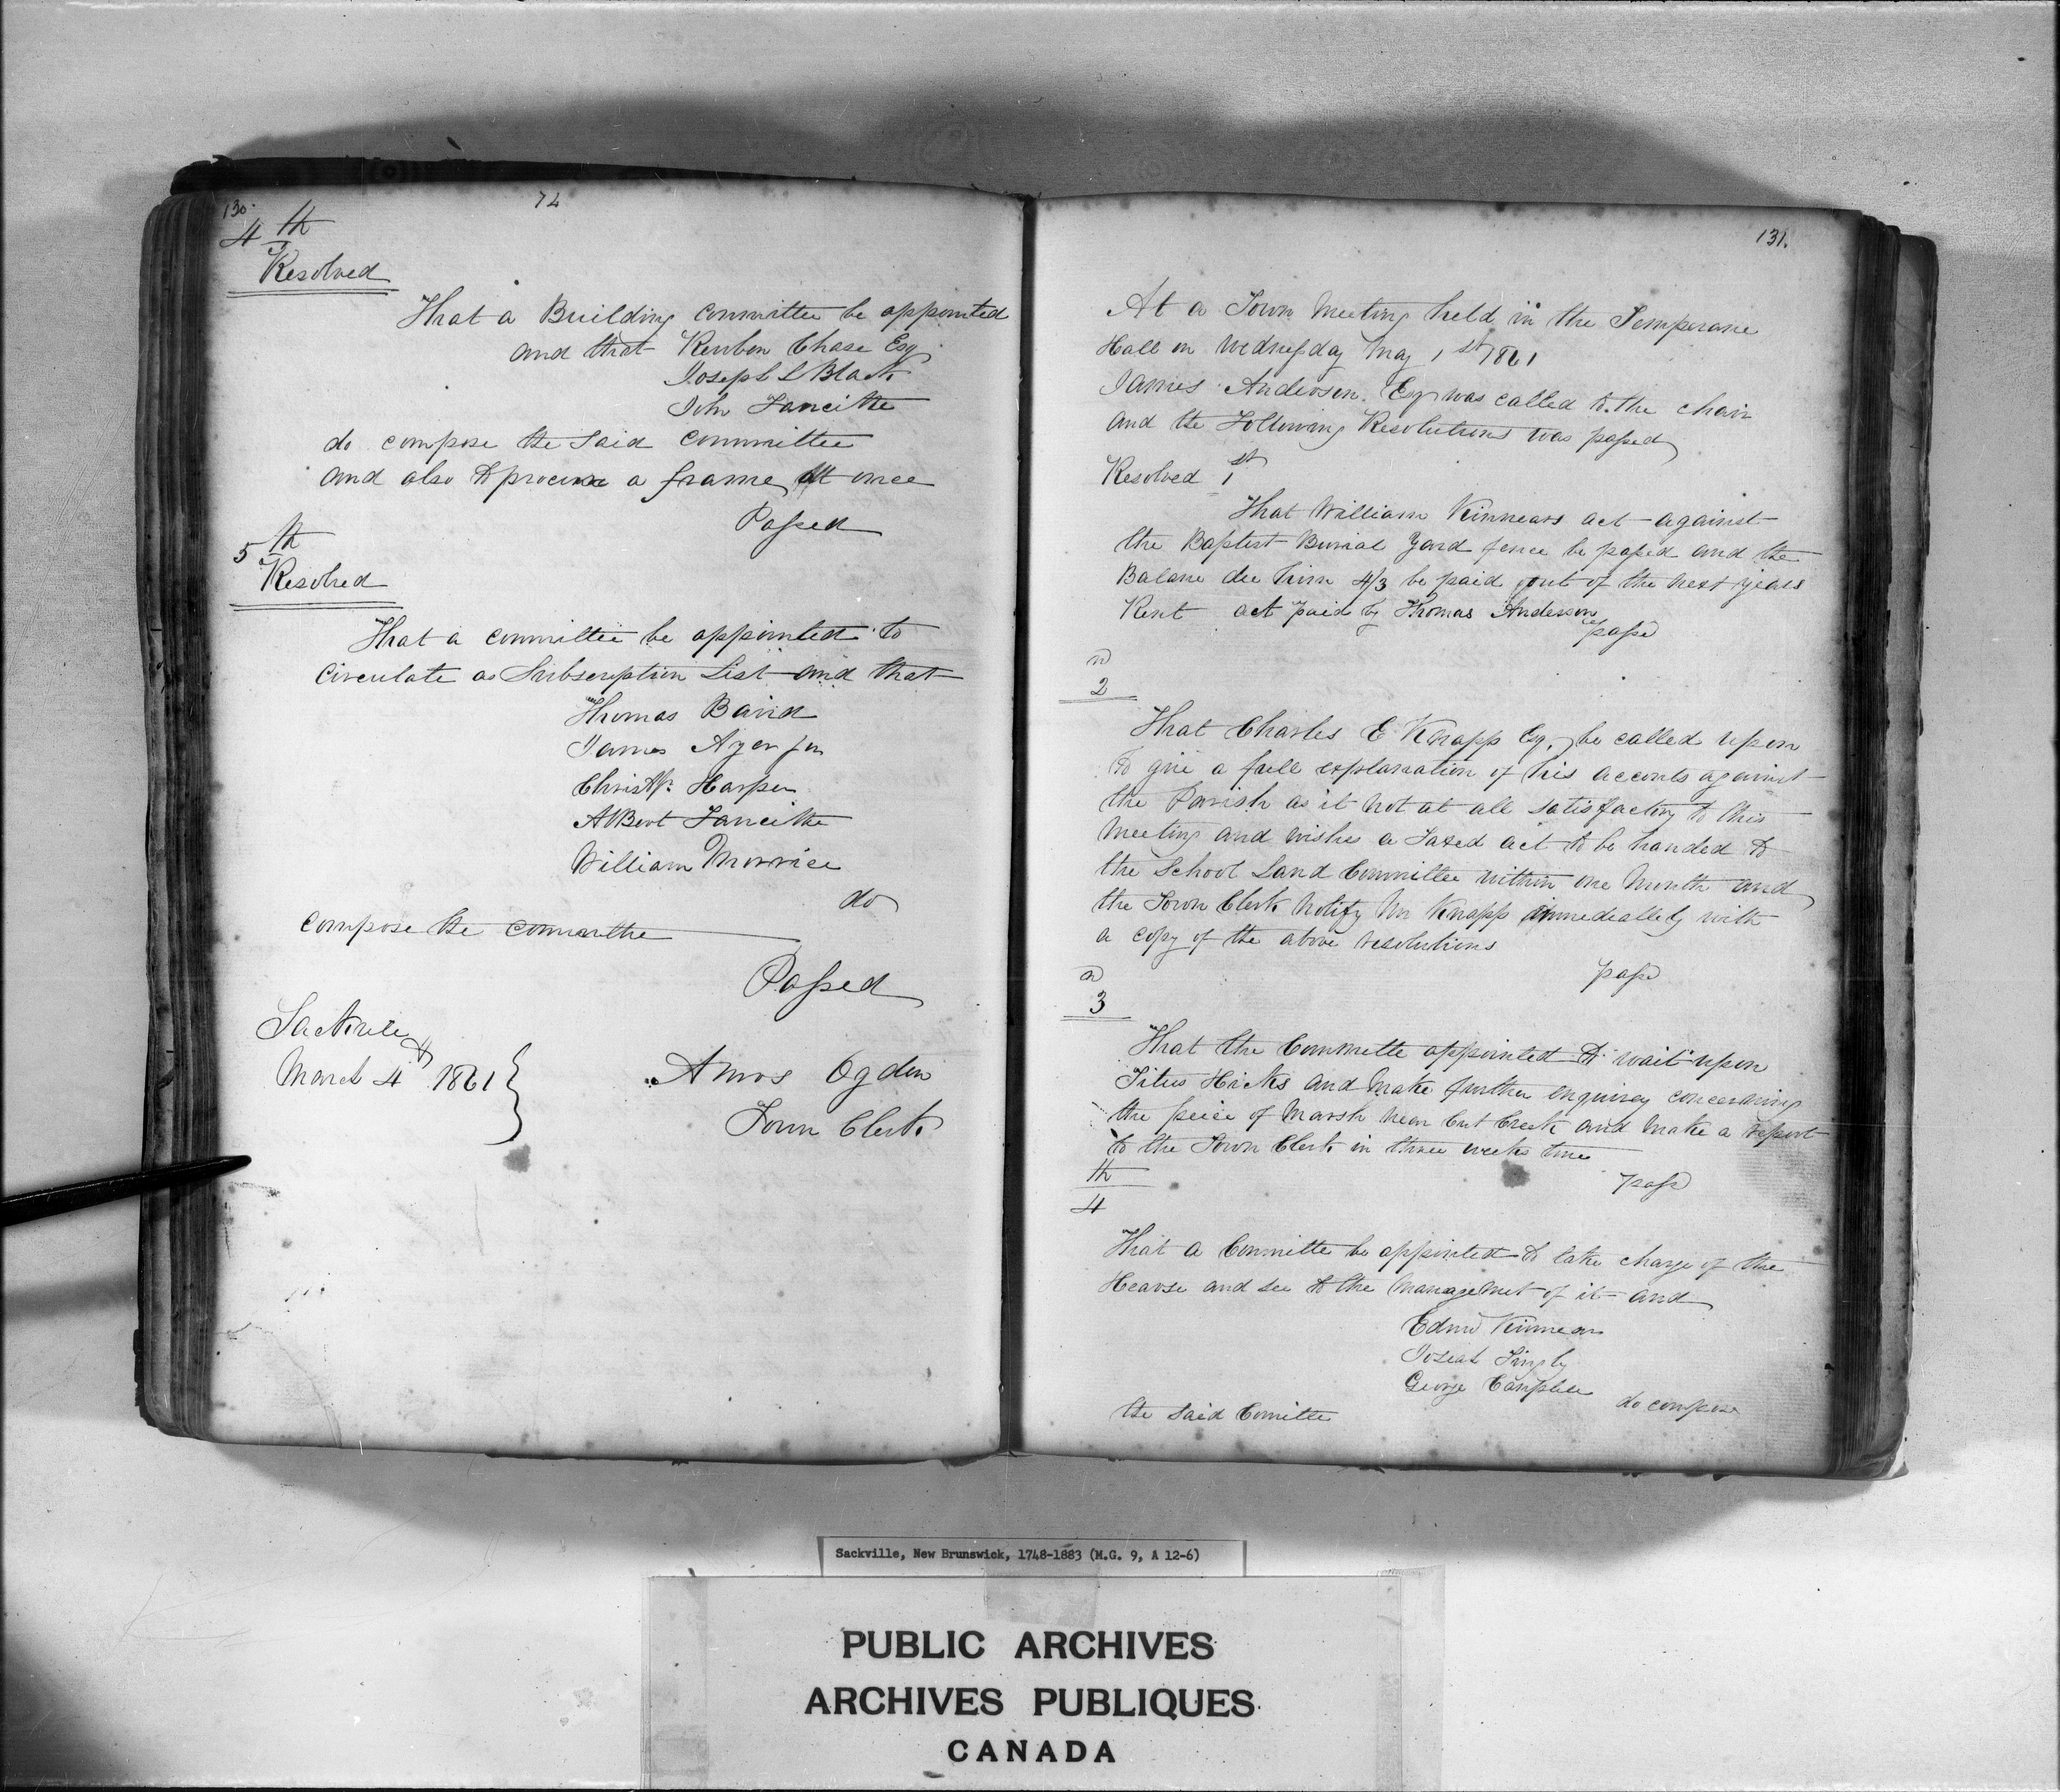 130.
74
4th
Resolved
That a Building Committee be appointed
and that Reuben Chase Esq
Joseph L Black
John Fawcitte
do compose the Said Committee
and also to procure a frame at once
Passed
5th
Resolved
That a committee be appointed to
Circulate a Subscription List and that
Thomas Baird
James Ayer Jun
Christr. Harper
Albert Fawcitte
William Morrice
do
compose the committe
Passed
Sackville
March 4th 1861
Amos Ogden
Town Clerk
131.
At a Town Meeting held in the Temperane
Hall on Wednesday May 1st 1861
James Anderson. Esq was called to the chair
and the Following Resolutions was passed
Resolved 1st
That William Kinnears act against
the Baptist Burial Yard fence be passed and the
Balane due him 4/3 be paid out of the next years
Rent act paid by Thomas Anderson
passd
2d
That Charles E Knapp Esq. be called upon
to give a full explanation of his acconts against
the Parish as it not at all satisfactory to this
Meeting and wishes a Taxed act to be handed to
the School Land Committee within one Month and
the Town Clerk Notify Mr Knapp immediatlely with
a copy of the above resolutions
passd
3d
That the Committe appointed to wait upon
Titus Hicks and Make further enquirey concerning
the peice of Marsh near Cut Creek and Make a report
to the Town Clerk in three weeks time
passd
4th
That a Committe be appointed to take charge of the
Hearse and see to the Managemet of it and
Edwd Kinnear
Josiah Tingly
George Campbell
do compose
the Said Comitte
Sackville, New Brunswick, 1748-1883 (M.G. 9, A 12-6)
PUBLIC ARCHIVES
ARCHIVES PUBLIQUES
CANADA